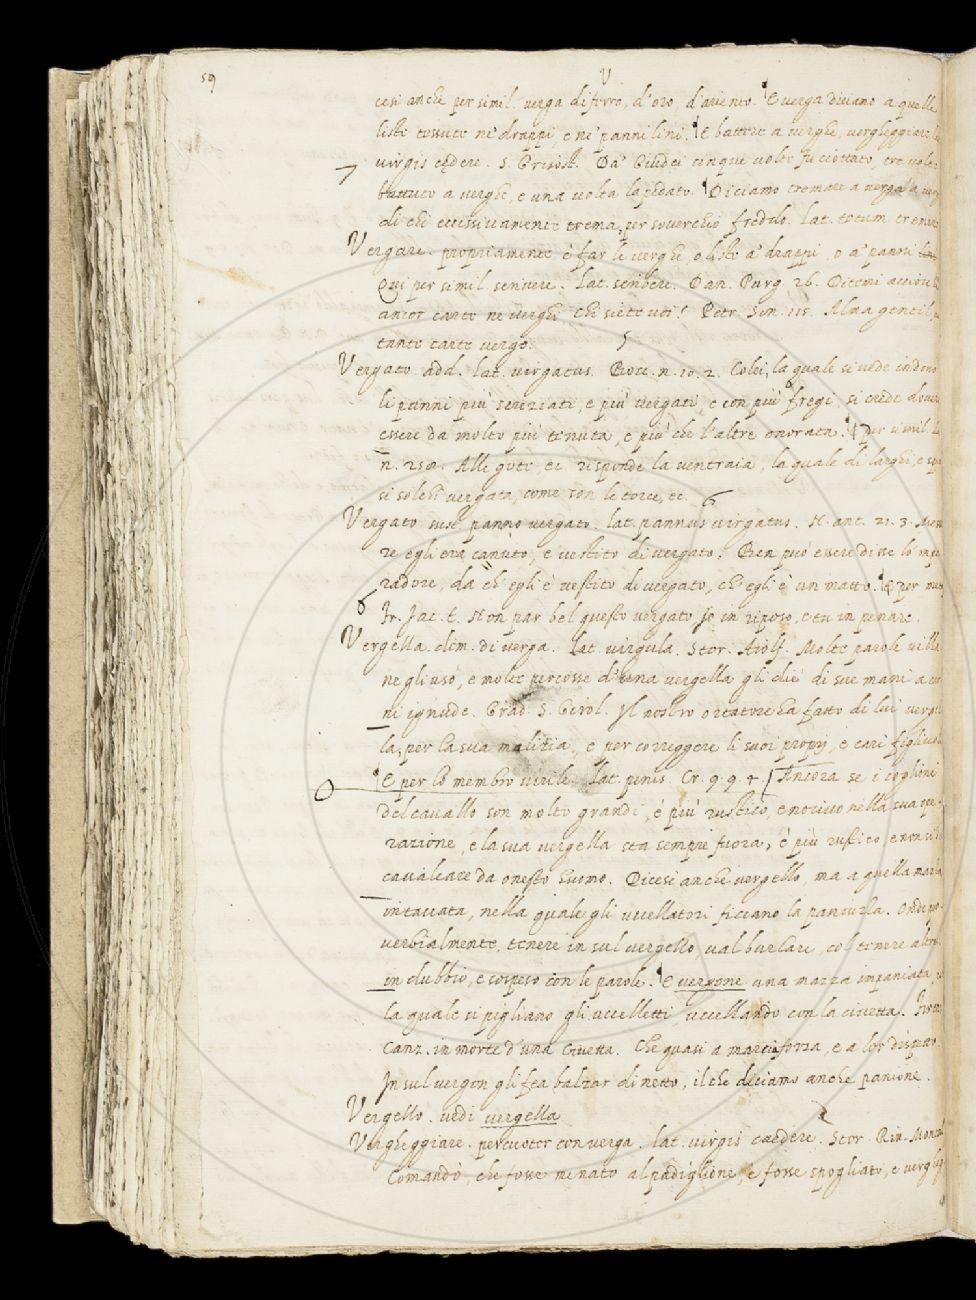 59
V
cesi anche per simil. verga di ferro, d'oro d'ariento. E verga diciamo a quelle
liste tessute ne' drappi, e ne' panni lini. E battere a verghe, vergheggiare
virgis cędere. S. Grisost. Da' Giudei cinque volte fu ciottato, tre vol-
battuto a verghe, e una volta lapidato. Diciamo tremare a verga a verga
di chi eccessivamente trema, per soverchio freddo. lat. totum tremere
Vergare. propriamente è far le verghe, o liste a' drappi, o a' panni
Qui per simil. scrivere. lat. scribere. Dan. Purg. 26. Ditemi acciò
ancor carte ne verghi Chi siete voi! Petr. Son. 115. Alma gentil
tante carte vergo.
5
Vergato. add. lat. virgatus. Bocc. n. 10. 2. Colei, la quale si vede indosso
li panni più screziati, e più vergati, e con più fregi, si crede dover
essere da molto più tenuta, e più che l'altre onorata. E per simil.
n. 250. Alle gote ec. risponde la ventraia, la quale di larghi, e
si solchi vergata, come son le torce, ec.
6
Vergato sust. panno vergato. lat. pannus virgatus. N. ant. 21. 3.
re egli era canuto, e vestito di vergato. Ben può essere disse lo'mpe
radore, da ch' egli è vestito di vergato, ch' egli è un matto. E per
Fr. Jac. t. Non par bel questo vergato, Jo in riposo, e tu in penare.
Vergella. dim. di verga. lat. virgula. Stor. Aiolf. Molte parole ville
ne gli usò, e molte percosse d'una vergella gli diè di sue mani a
ni ignude. Grad. S. Girol. Jl nostro creatore ha fatto di lui vergel
la, per la sua malizia, e per correggere li suoi proprj, e cari figliuoli
E per lo membro virile. lat. penis. Cr. 9. 9. 4. Ancora se i coglioni
del cavallo son molto grandi, è più rustico, e nocivo nella sua ope-
razione, e la sua vergella sta sempre fuora, è più rustico, e non si
cavalcare da onesto huomo. Dicesi anche vergello, ma a quella mazza
intaccata, nella quale gli uccellatori ficcano la paniuzza. Onde pro-
verbialmente, tenere in sul vergello, val burlare, col tenere altrui
in dubbio, e sospeso con le parole. E vergone una mazza impaniata,
la quale si pigliano gli uccelletti, uccellando con la civetta.
Canz. in morte d'una Civetta. Che quasi a marcia forza, e a lor dispetto
In sul vergon gli fea balzar di netto, il che diciamo anche panione.
Vergello. vedi vergella
Vergheggiare. percuoter con verga. lat. virgis caedere. Stor. Rin. Montal
Comandò, che fosse menato al padiglione, e fosse spogliato, e vergheg